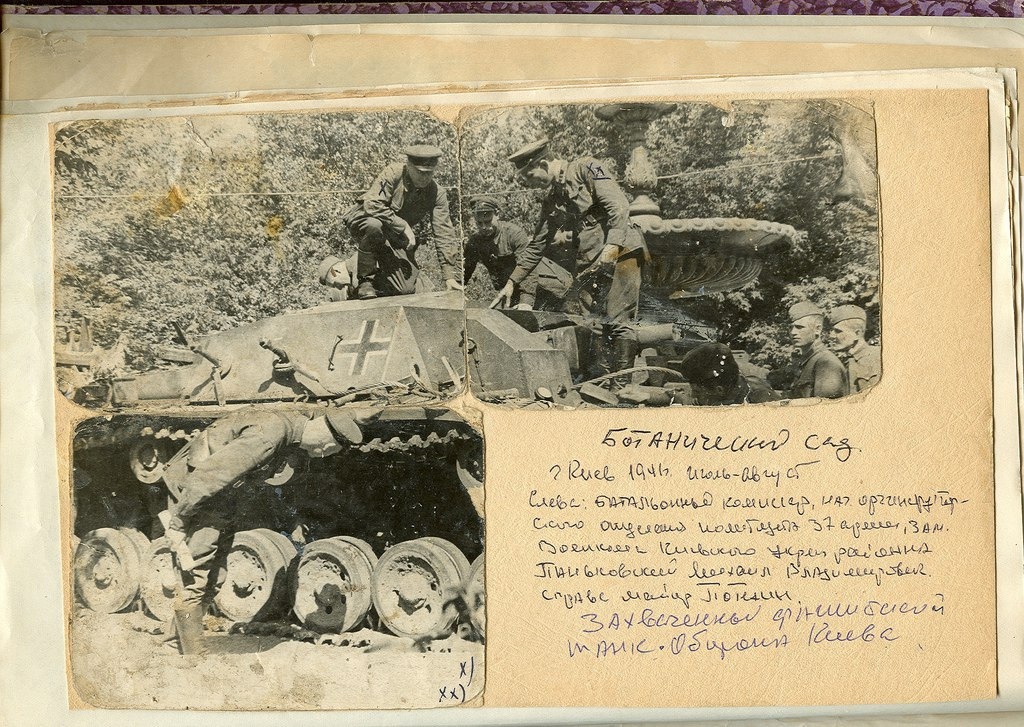 х
хх
Ботанический сад
г Киев 1941г. июль-август
Слева: батальонный комиссар, нач. оргинструктор-
ского отделения политотдела 37 армии, зам.
Военкома Киевского укрепрайона
Паньковский Михаил Владимирович.
Справа майор
Захваченный фашистский
танк. Оборона Киева
х)
хх)